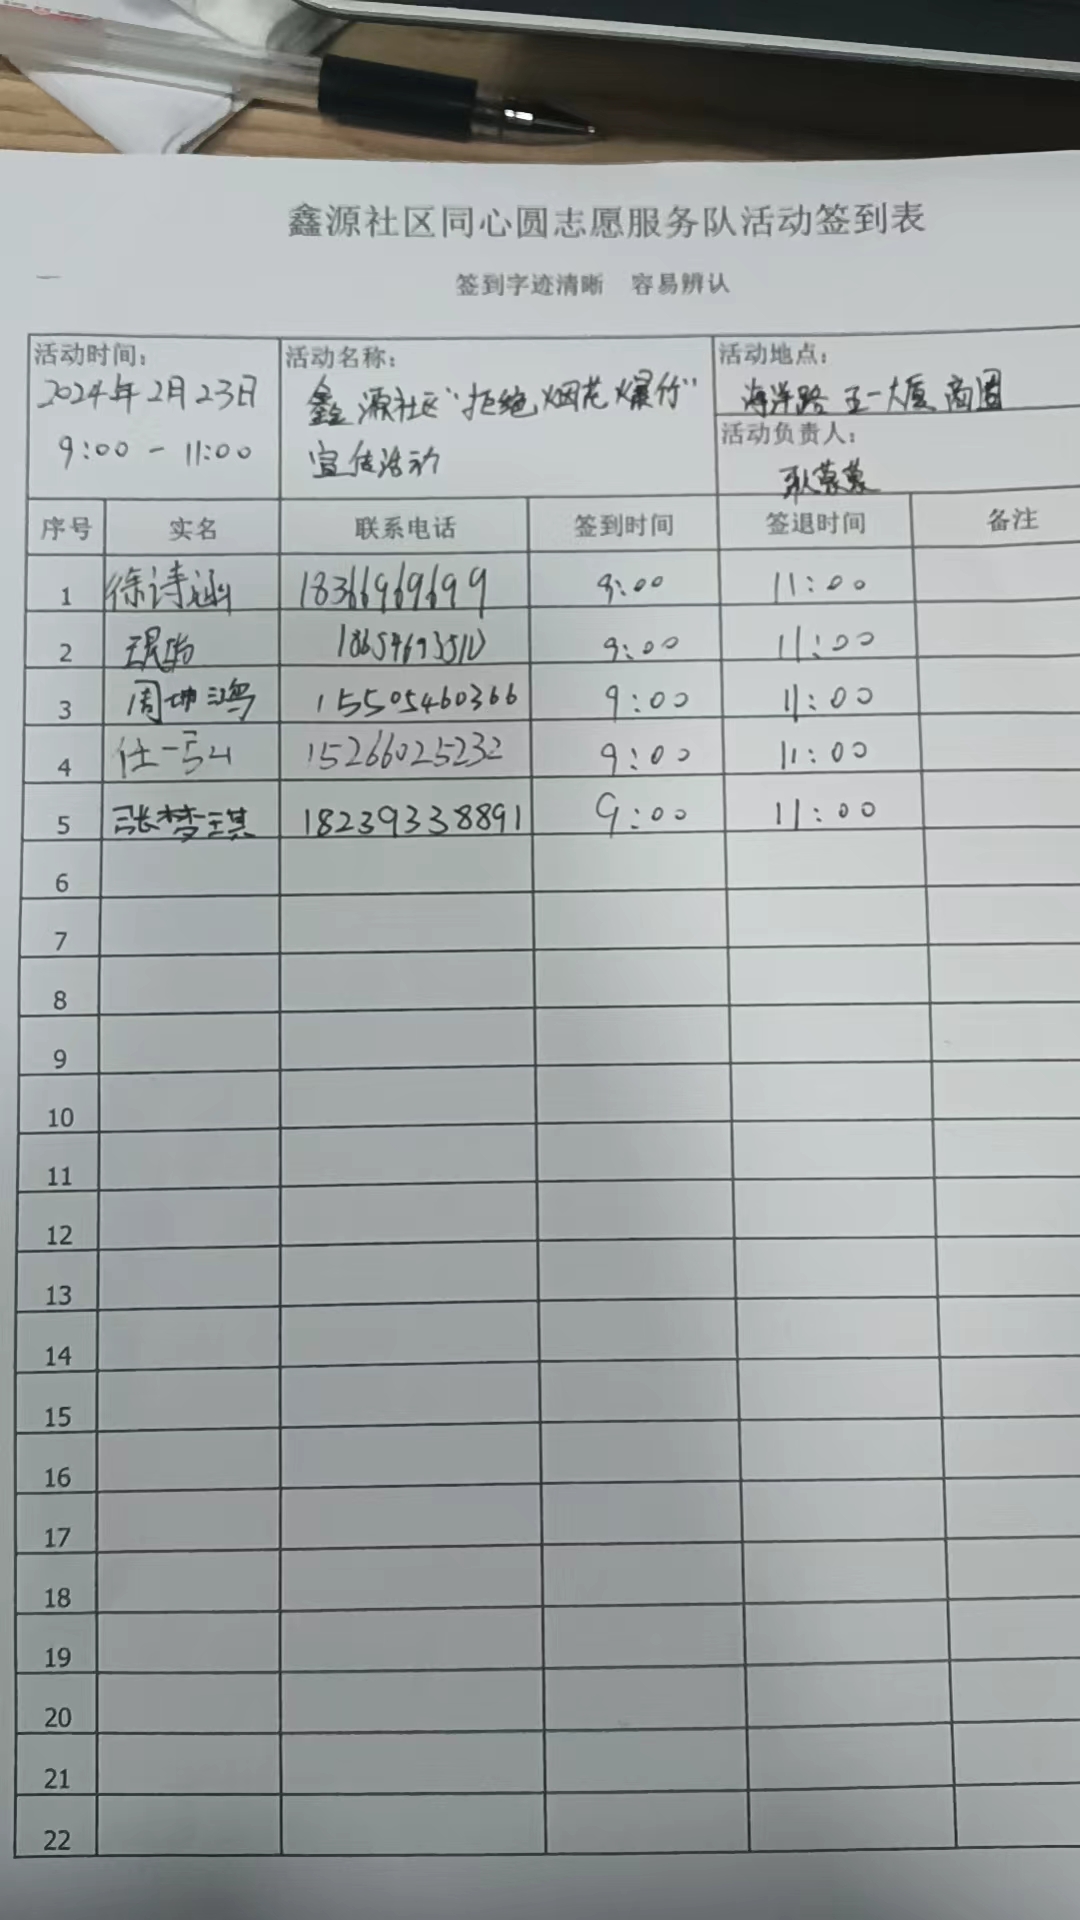 鑫源社区同心圆志愿服务队活动签到表
签到字迹清晰 容易辨认
活动时间: 活动名称: 活动地点:
2024年2月23日 鑫源社区“拒绝烟花爆竹” 海洋路 五一大厦 商圈
9:00 - 11:00 宣传活动 活动负责人:
耿蒙蒙
序号 实名 联系电话 签到时间 签退时间 备注
1 徐诗涵 18366969699 9:00 11:00
2 9:00 11:00
3 周坤鸿 15505460366 9:00 11:00
4 任一 15266025232 9:00 11:00
5 张梦琪 18239338891 9:00 11:00
6
7
8
9
10
11
12
13
14
15
16
17
18
19
20
21
22